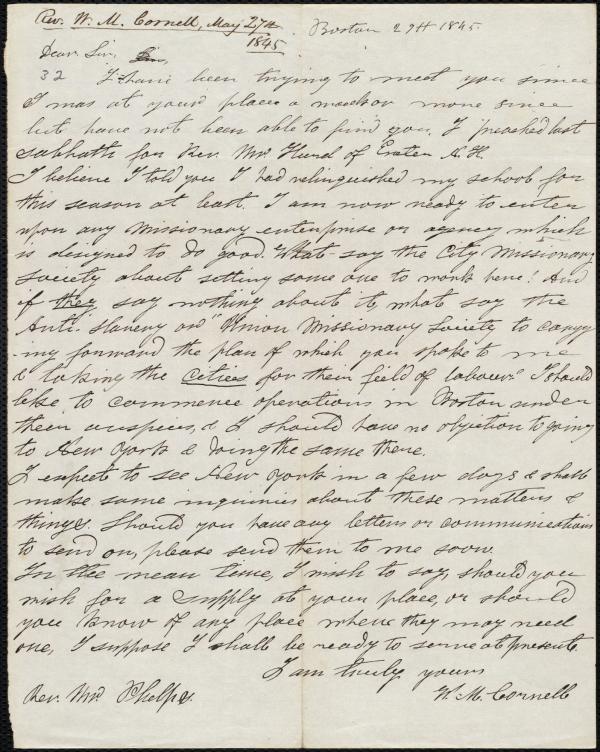 Rev. W. M. Cornell, May 27th
1845
Boston 29th 1845.
Dear Sir,
32 I have been trying to meet you since
I was at your place a week or more since
but have not been able to find you. I preached last
sabbath for Rev. Mr. Hurd of Exeter N. H.
I believe I told you I had relinquished my school for
this season at least. I am now ready to enter
upon any missionary enterprise or agency which
is designed to do good. What say the City Missionary
Society about setting some one to work here? And
if they say nothing about it, what say the
Anti Slavery or "Union Missionary Society to carry-
ing forward the plan of which you spoke to me
& taking the cities for their field of labour? I should
like to commence operations in Boston under
their auspices, & I should have no objection to going
to New York & doing the same there.
I expect to see New York in a few days & shall
make some inquiries about these matters &
things. Should you have any letters or communications
to send on, please send them to me soon.
In the mean time, I wish to say, should you
wish for a supply at your place, or should
you know of any place where they may need
one, I suppose I shall be ready to serve at present.
I am truly yours
Rev. Mr. Phelps. W. M. Cornell